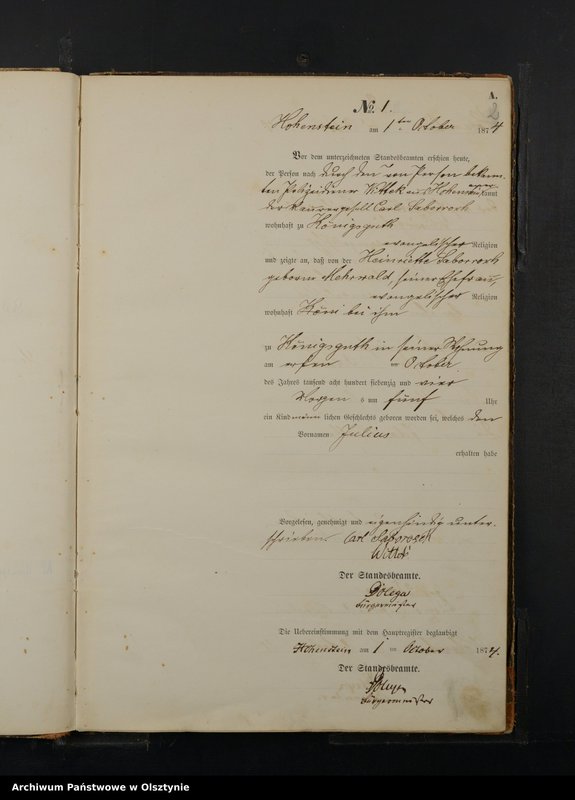 A.
2
No. 1.
Hohenstein am 1ten October 1874
Vor dem unterzeichneten Standesbeamten erschien heute,
der Person nach durch den von Person bekann-
ten Polizeidiener Wittek aus Hohenstein aner kannt
der Maurergesell Carl Saborrosch
wohnhaft zu Königsguth
evangelischer Religion
und zeigte an, daß von der Heinriette Saborrosch
geborne Mehrwald, seiner Ehefrau,
evangelischer Religion
wohnhaft bei ihm
zu Königsguth in seiner Wohnung
am ersten October
des Jahres tausend acht hundert siebenzig und vier
Morgens um fünf Uhr
ein Kind männlichen Geschlechts geboren worden sei, welches den
Vornamen Julius
erhalten habe
Vorgelesen, genehmigt und eigenhändig unter-
schrieben Carl Saborosch
Wittek
Der Standesbeamte.
Dolega
Bürgermeister
Die Uebereinstimmung mit dem Hauptregister beglaubigt
Hohenstein am 1 ten October 1874.
Der Standesbeamte.
Dolega
Bürgermeister
Archiwum Państwowe w Olsztynie